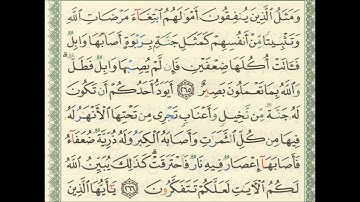 وَمَثَلُ ٱلَّذِينَ يُنفِقُونَ أَمْوَٰلَهُمُ ٱبْتِغَآءَ مَرْضَاتِ ٱللَّهِ
وَتَثْبِيتًا مِّنْ أَنفُسِهِمْ كَمَثَلِ جَنَّةٍۭ بِرَبْوَةٍ أَصَابَهَا وَابِلٌ
فَـَٔاتَتْ أُكُلَهَا ضِعْفَيْنِ فَإِن لَّمْ يُصِبْهَا وَابِلٌ فَطَلٌّ
وَٱللَّهُ بِمَا تَعْمَلُونَ بَصِيرٌ ٢٦٥ أَيَوَدُّ أَحَدُكُمْ أَن تَكُونَ
لَهُۥ جَنَّةٌ مِّن نَّخِيلٍ وَأَعْنَابٍ تَجْرِى مِن تَحْتِهَا ٱلْأَنْهَٰرُ لَهُۥ
فِيهَا مِن كُلِّ ٱلثَّمَرَٰتِ وَأَصَابَهُ ٱلْكِبَرُ وَلَهُۥ ذُرِّيَّةٌ ضُعَفَآءُ
فَأَصَابَهَآ إِعْصَارٌ فِيهِ نَارٌ فَٱحْتَرَقَتْ كَذَٰلِكَ يُبَيِّنُ ٱللَّهُ
لَكُمُ ٱلْـَٔايَٰتِ لَعَلَّكُمْ تَتَفَكَّرُونَ ٢٦٦ يَٰٓأَيُّهَا ٱلَّذِينَ